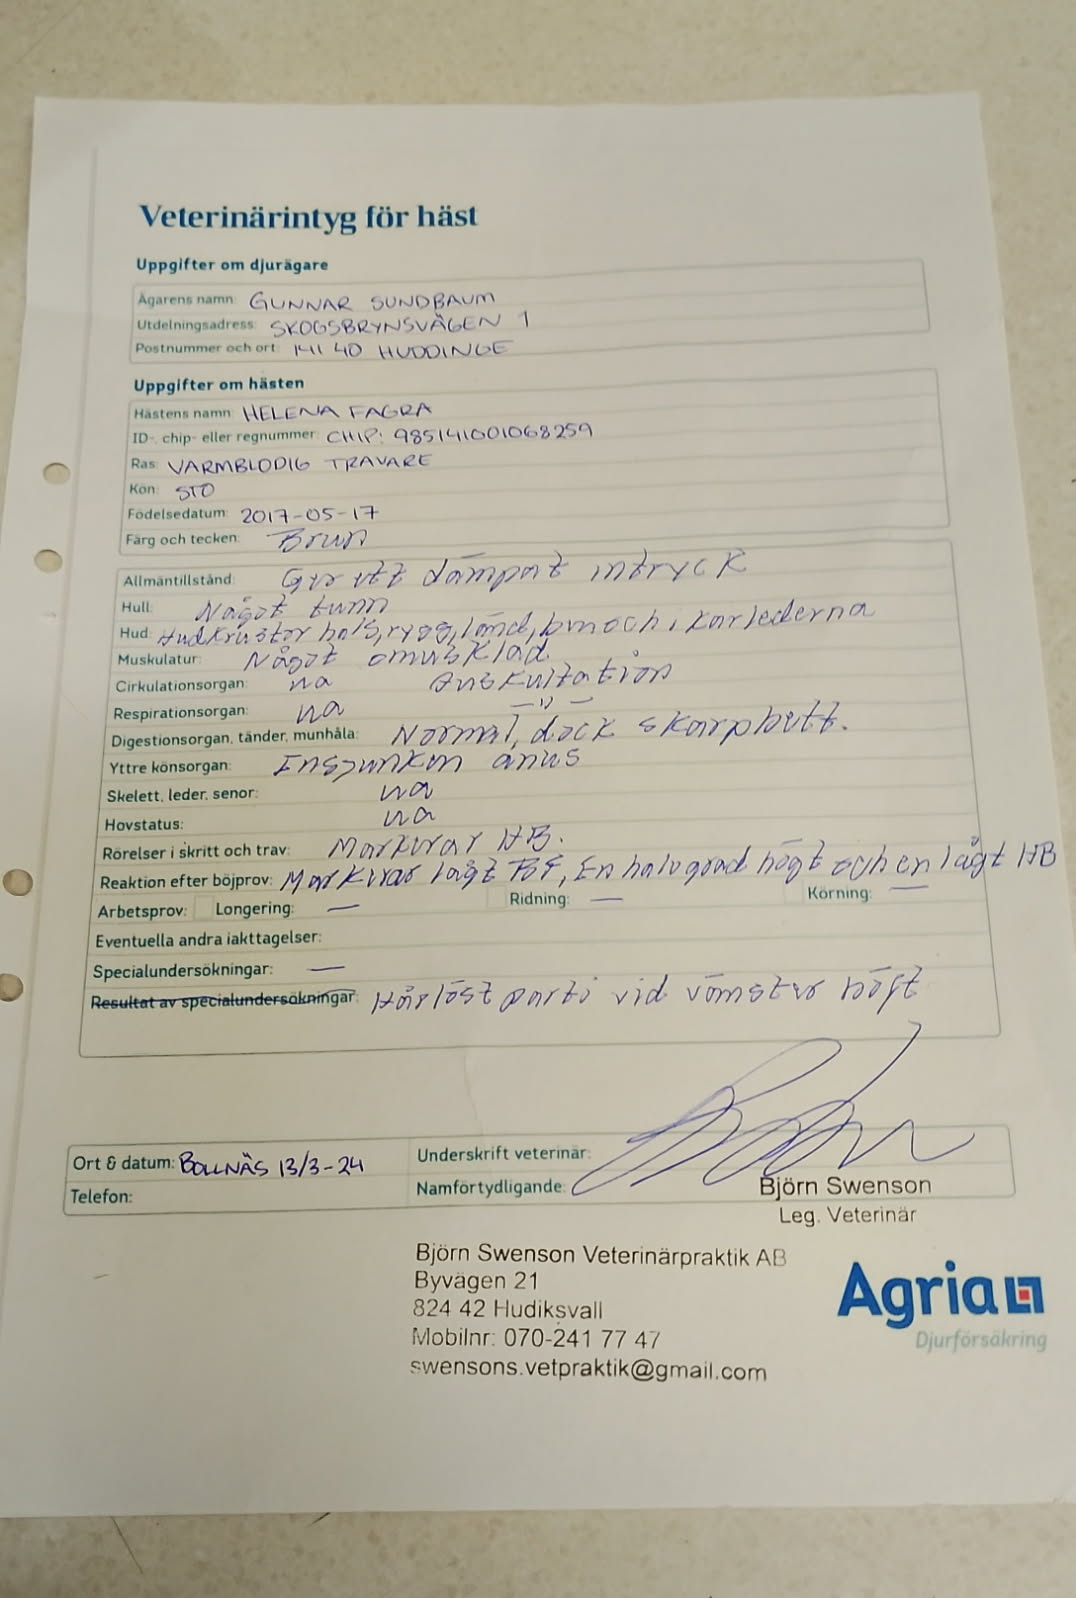 Veterinärintyg för häst
Uppgifter om djurägare
Ägarens namn: GUNNAR SUNDBAUM
Utdelningsadress: SKOGSBRYNSVÄGEN 1
Postnummer och ort: 141 40 HUDDINGE
Uppgifter om hästen
Hästens namn: HELENA FAGRA
ID-, chip- eller regnummer: CHIP: 985141001068259
Ras: VARMBLODIG TRAVARE
Kön: STO
Födelsedatum: 2017-05-17
Färg och tecken: Brun
Allmäntillstånd: Ger ett dämpat intryck
Hull: Något tunn
Hud: Hudkrustor hals, rygg, länd, ben och i karlederna
Muskulatur: Något omusklad
Cirkulationsorgan: na Auskultation
Respirationsorgan: na -"-
Digestionsorgan, tänder, munhåla: Normal, dock skarpbett.
Yttre könsorgan: Insjunken anus
Skelett, leder, senor: na
Hovstatus: na
Rörelser i skritt och trav: Markerar HB.
Reaktion efter böjprov: Markerar lågt BF, En halv grad högt och en lågt HB
Arbetsprov: Longering: — Ridning: — Körning: —
Eventuella andra iakttagelser:
Specialundersökningar: —
Resultat av specialundersökningar: Hårlöst parti vid vänster höft
Ort & datum: BOLLNÄS 13/3-24 Underskrift veterinär:
Telefon: Namförtydligande: Björn Swenson
Leg. Veterinär
Björn Swenson Veterinärpraktik AB
Byvägen 21
824 42 Hudiksvall
Mobilnr: 070-241 77 47
swensons.vetpraktik@gmail.com
Agria
Djurförsäkring